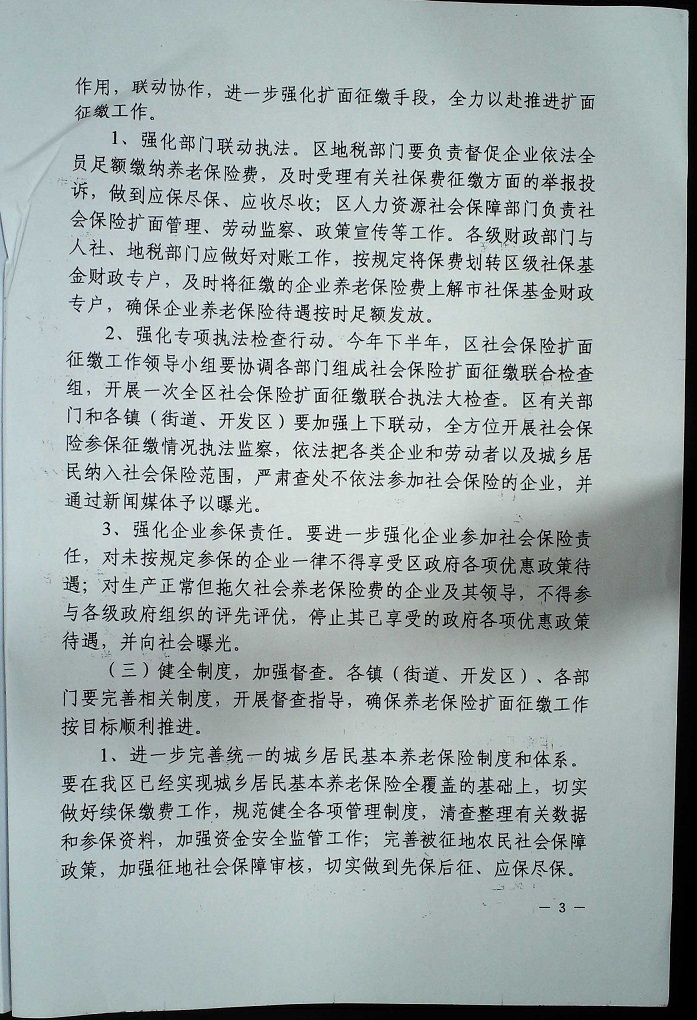 作用，联动协作，进一步强化扩面征缴手段，全力以赴推进扩面
征缴工作。
1、强化部门联动执法。区地税部门要负责督促企业依法全
员足额缴纳养老保险费，及时受理有关社保费征缴方面的举报投
诉，做到应保尽保、应收尽收；区人力资源社会保障部门负责社
会保险扩面管理、劳动监察、政策宣传等工作。各级财政部门与
人社、地税部门应做好对账工作，按规定将保费划转区级社保基
金财政专户，及时将征缴的企业养老保险费上解市社保基金财政
专户，确保企业养老保险待遇按时足额发放。
2、强化专项执法检查行动。今年下半年，区社会保险扩面
征缴工作领导小组要协调各部门组成社会保险扩面征缴联合检查
组，开展一次全区社会保险扩面征缴联合执法大检查。区有关部
门和各镇（街道、开发区）要加强上下联动，全方位开展社会保
险参保征缴情况执法监察，依法把各类企业和劳动者以及城乡居
民纳入社会保险范围，严肃查处不依法参加社会保险的企业，并
通过新闻媒体予以曝光。
3、强化企业参保责任。要进一步强化企业参加社会保险责
任，对未按规定参保的企业一律不得享受区政府各项优惠政策待
遇；对生产正常但拖欠社会养老保险费的企业及其领导，不得参
与各级政府组织的评先评优，停止其已享受的政府各项优惠政策
待遇，并向社会曝光。
（三）健全制度，加强督查。各镇（街道、开发区）、各部
门要完善相关制度，开展督查指导，确保养老保险扩面征缴工作
按目标顺利推进。
1、进一步完善统一的城乡居民基本养老保险制度和体系。
要在我区已经实现城乡居民基本养老保险全覆盖的基础上，切实
做好续保缴费工作，规范健全各项管理制度，清查整理有关数据
和参保资料，加强资金安全监管工作；完善被征地农民社会保障
政策，加强征地社会保障审核，切实做到先保后征、应保尽保。
— 3 —